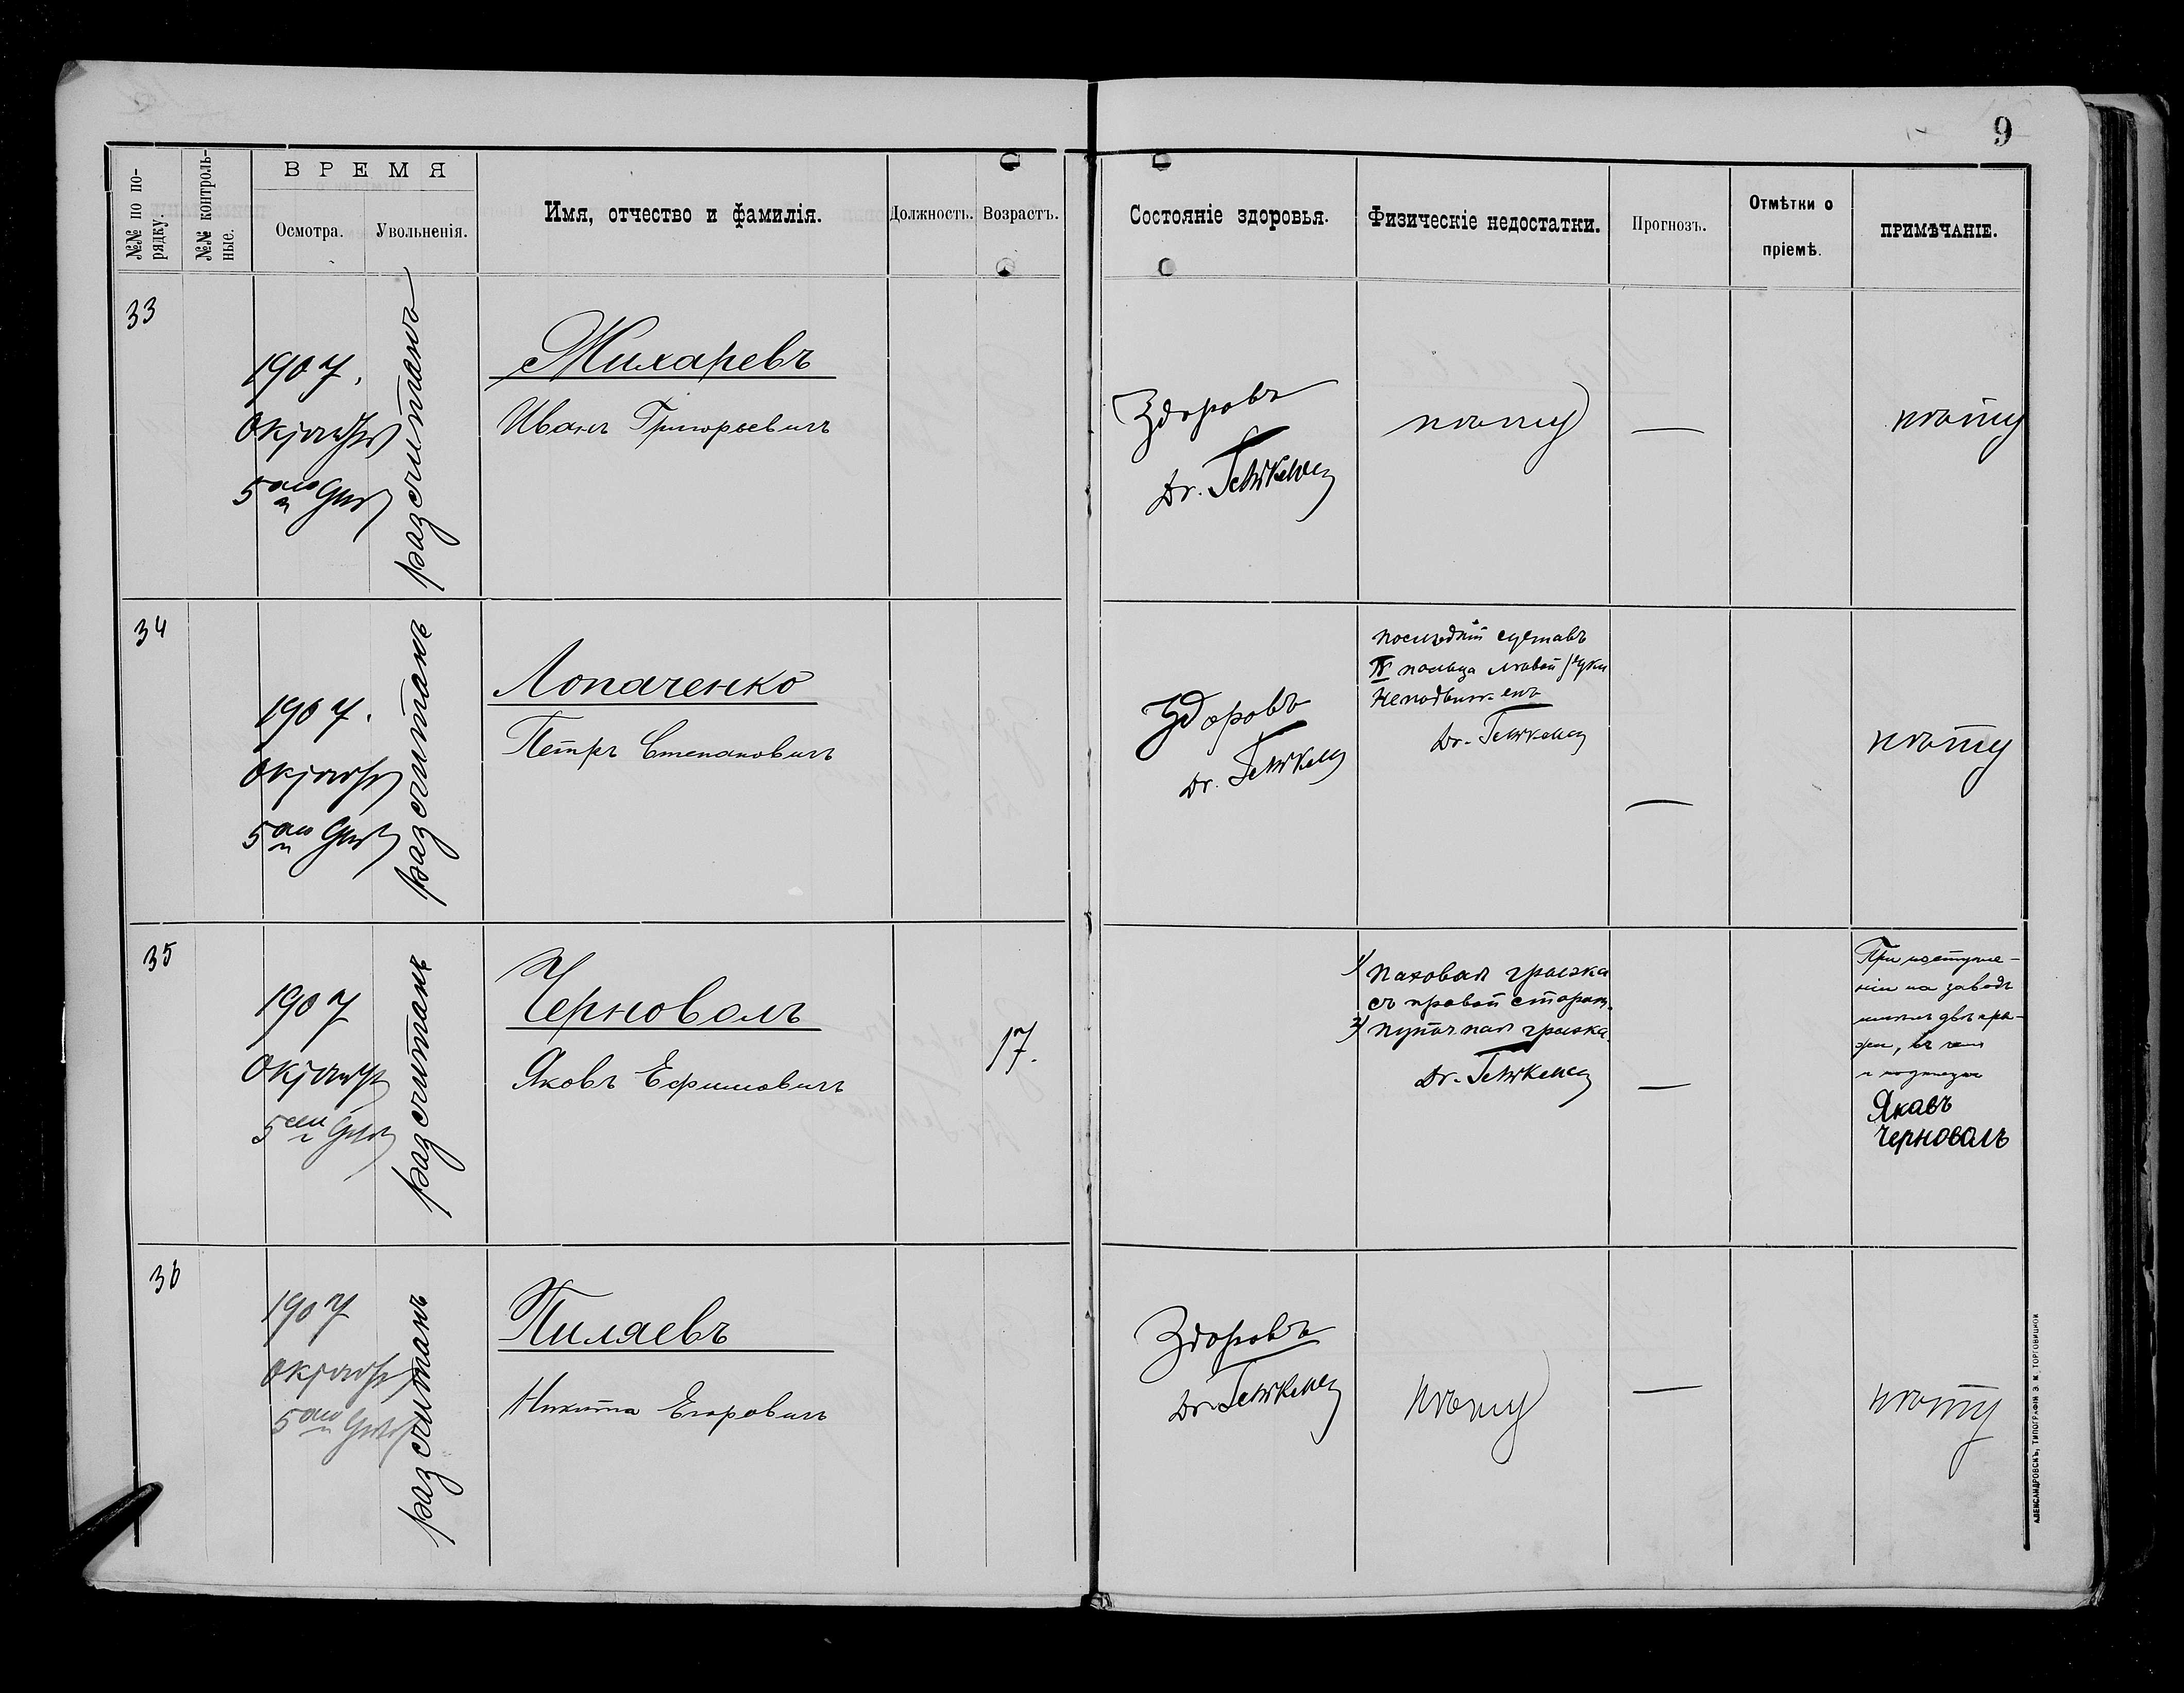 9
№№ по по-
рядку.
№№ контроль-
ные.
ВРЕМЯ
Осмотра.
Увольненія.
Имя, отчество и фамилія.
Должность.
Возрастъ.
Состояніе здоровья.
Физическіе недостатки.
Прогнозъ.
Отмѣтки о
пріемѣ.
ПРИМѢЧАНІЕ.
33
1907.
Октября
5го дня
разсчитанъ
Жихаревъ
Иванъ Григорьевичъ
Здоровъ
Dr.
нѣту
—
нѣту
34
1907.
Октября
5го дня
разсчитанъ
Лопаченко
Петръ Степановичъ
Здоровъ
Dr.
послѣдній суставъ
IV пальца лѣвой руки
неподвиженъ
Dr.
—
нѣту
35
1907
Октября
5го дня
разсчитанъ
Черноволъ
Яковъ Ефимовичъ
17.
1) паховая грыжа
съ правой сторон.
2) пупочная грыжа.
Dr.
—
При поступле-
ніи на заводъ
имѣлъ двѣ гры-
жи, въ чем
и подпис
Якавъ
Черноволъ
36
1907
Октября
5го дня
разсчитанъ
Пиляевъ
Никита Егоровичъ
Здоровъ
Dr.
нѣту
—
нѣту
АЛЕКСАНДРОВСКЪ, ТИПОГРАФІЯ Э. М. ТОРГОВИЦКОЙ